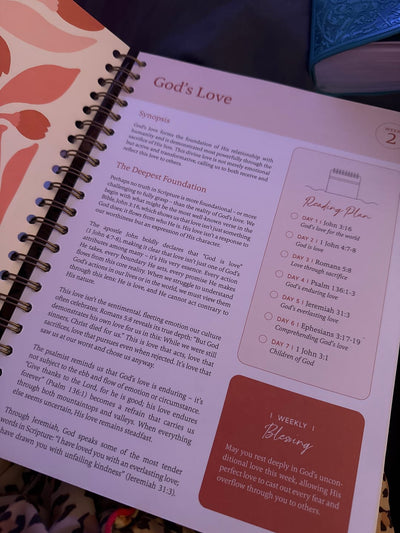 God's Love
WEEK
2
Synopsis
God's love forms the foundation of His relationship with
humanity and is demonstrated most powerfully through the
sacrifice of His Son. This divine love is not merely emotional
but active and transformative, calling us to both receive and
reflect this love to others.
The Deepest Foundation
Perhaps no truth in Scripture is more foundational – or more
challenging to fully grasp – than the reality of God's love. We
begin with what might be the most well-known verse in the
Bible, John 3:16, which shows us that God's love isn't just something
God does; it flows from who He is. His love isn't a response to
our worthiness but an expression of His character.
The apostle John boldly declares that "God is love"
(1 John 4:7-8), making it clear that love isn't just one of God's
attributes among many – it's His very essence. Every action
He takes, every boundary He sets, every promise He makes
flows from this core reality. When we struggle to understand
God's actions in our lives or in the world, we must view them
through this lens: He is love, and He cannot act contrary to
His nature.
This love isn't the sentimental, fleeting emotion our culture
often celebrates. Romans 5:8 reveals its true depth: "But God
demonstrates his own love for us in this: While we were still
sinners, Christ died for us." This is love that acts, love that
sacrifices, love that pursues even when rejected. It's love that
saw us at our worst and chose us anyway.
The psalmist reminds us that God's love is enduring – it's
not subject to the ebb and flow of emotion or circumstance.
"Give thanks to the Lord, for he is good; his love endures
forever" (Psalm 136:1) becomes a refrain that carries us
through both mountaintops and valleys. When everything
else seems uncertain, His love remains steadfast.
Through Jeremiah, God speaks some of the most tender
words in Scripture: "I have loved you with an everlasting love;
have drawn you with unfailing kindness" (Jeremiah 31:3).
Reading Plan
DAY 1 | John 3:16
God's love for the world
DAY 2 | 1 John 4:7-8
God is love
DAY 3 | Romans 5:8
Love through sacrifice
DAY 4 | Psalm 136:1-3
God's enduring love
DAY 5 | Jeremiah 31:3
God's everlasting love
DAY 6 | Ephesians 3:17-19
Comprehending God's love
DAY 7 | 1 John 3:1
Children of God
| WEEKLY |
Blessing
May you rest deeply in God's uncon-
ditional love this week, allowing His
perfect love to cast out every fear and
overflow through you to others.